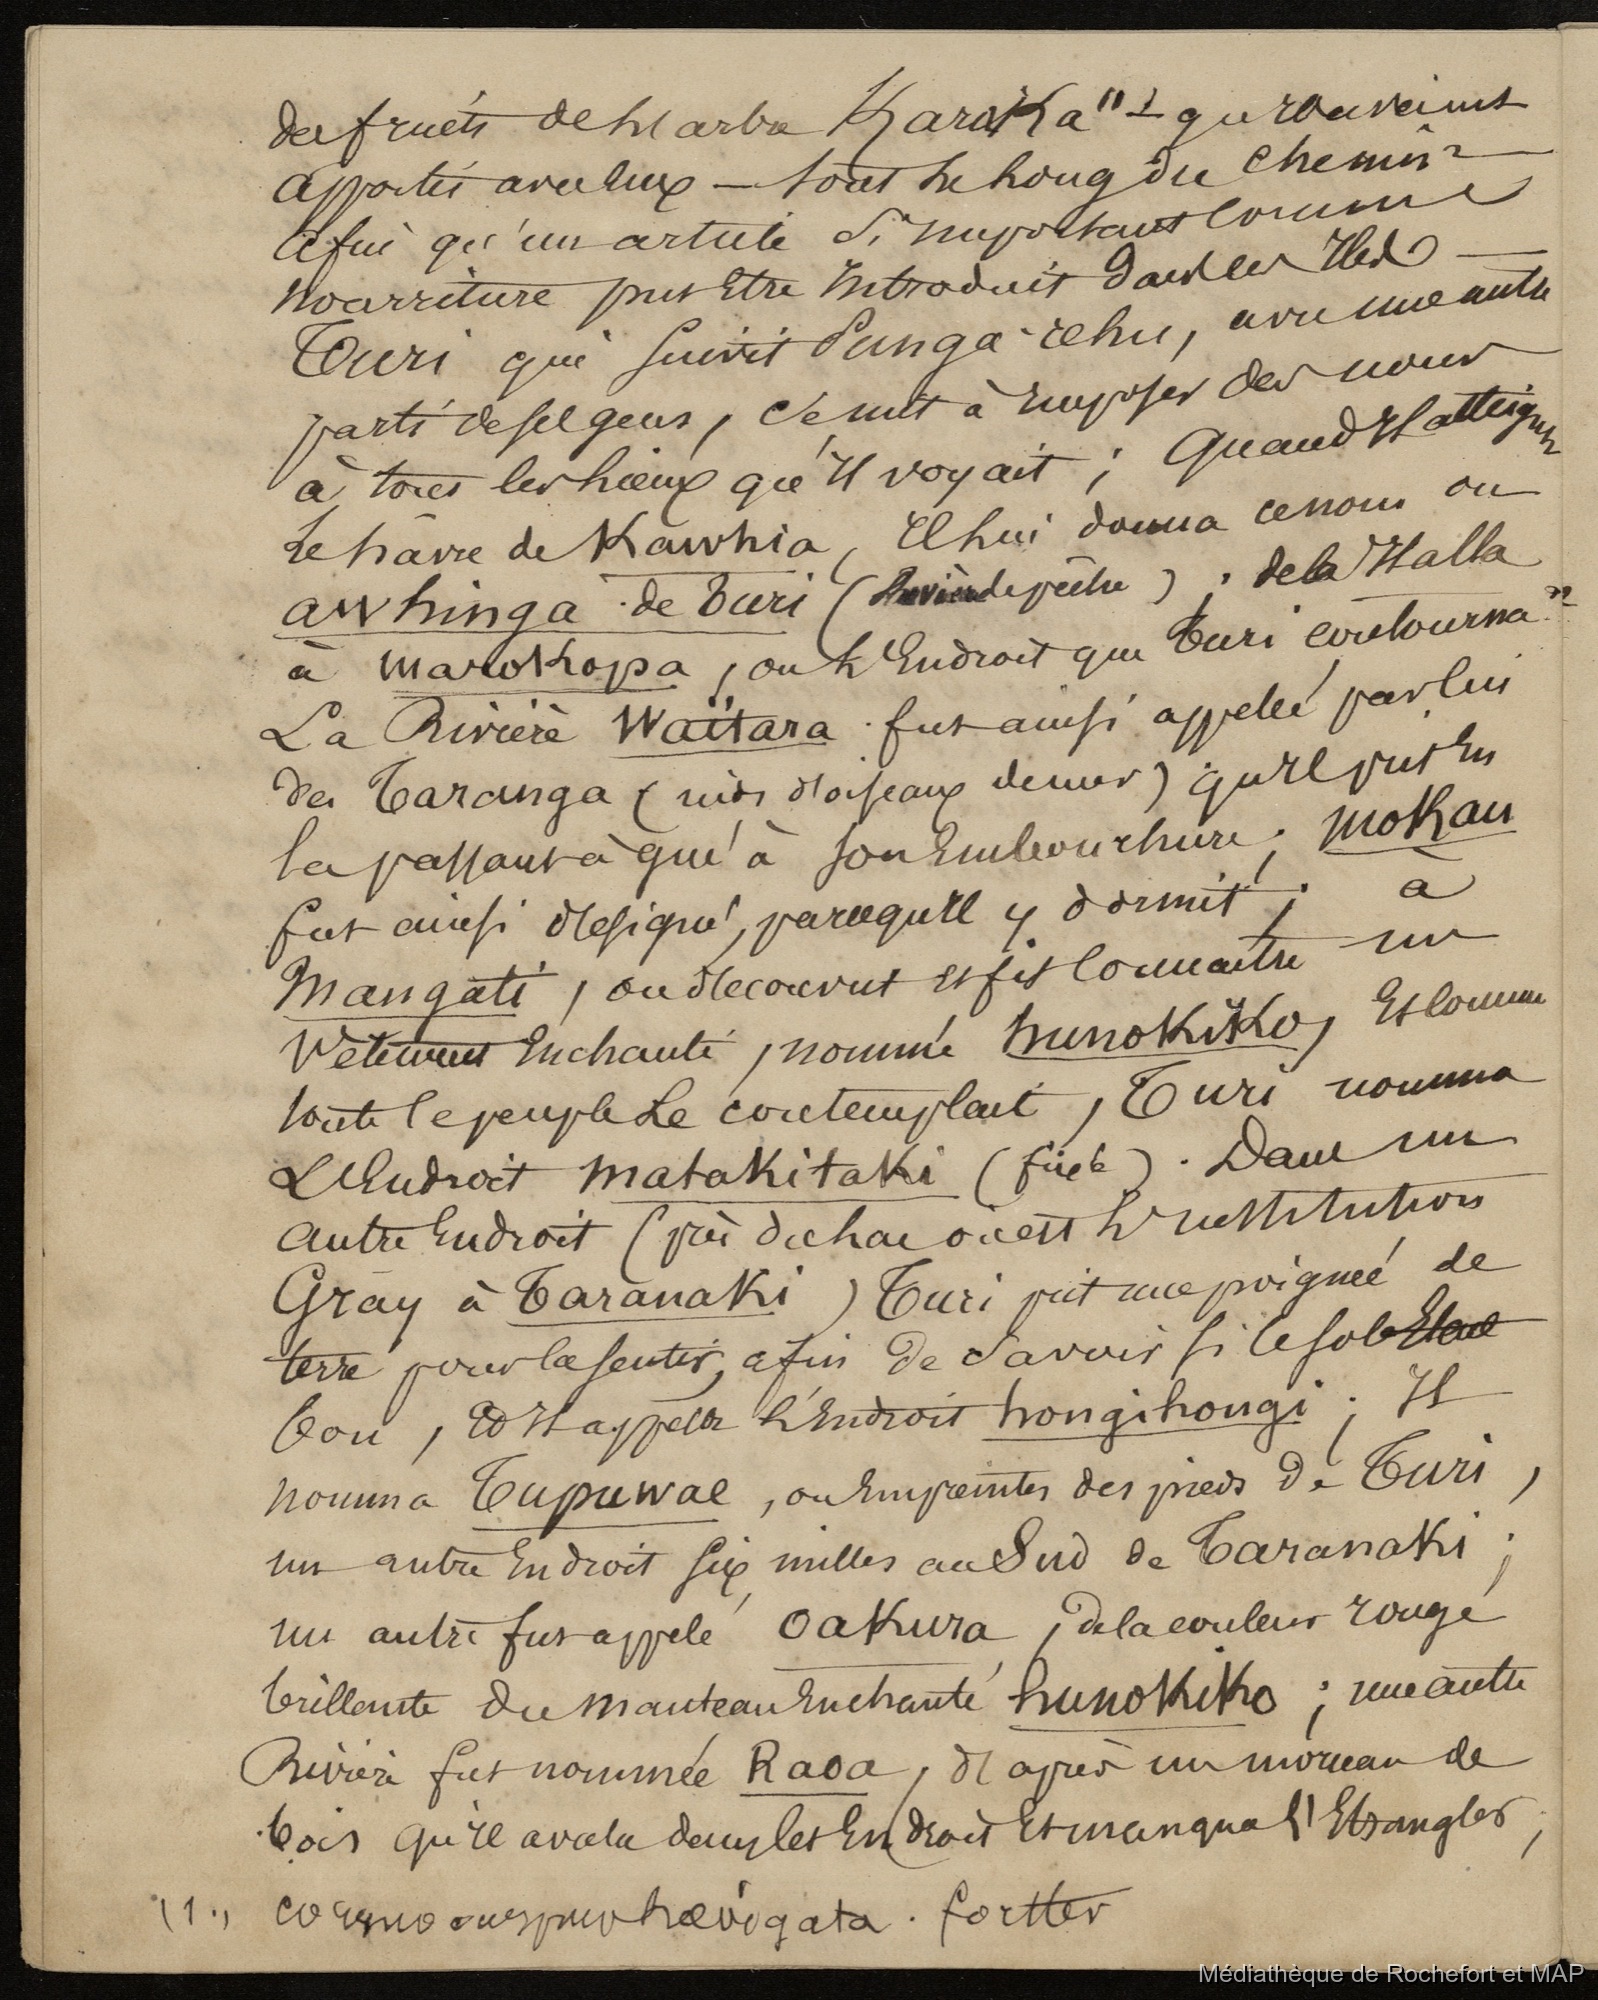 des fruits de l'arbre Karaka "1 qu'ils avaient
apportés avec eux — tout le long du chemin
afin qu'un article si important comme
nourriture put être introduit dans les Iles —
Turi qui suivit Punga-rehu, avec une autre
parti de ses gens, se mit à imposer des noms
à tous les lieux qu'il voyait ; quand il atteignit
le hâvre de Kawhia, il lui donna ce nom ou
awhinga de Turi ( de pêche ) ; de la il alla
à marokopa, ou l'Endroit que Turi contourna
La Rivière Waïtara fut ainsi appelée par lui
des Taranga (nids d'oiseaux de mer) qu'il prit en
la passant à gué à son Embouchure ; mokau
fut ainsi désigné, parcequ'il y dormit ; à
Mangati, ou découvrit et fit connaitre un
Vêtement Enchanté, nommé hunokiko, Et comme
toute le peuple Le contemplait, Turi nomma
L'Endroit matakitaki (fixé). Dans un
autre Endroit (près du lac où est l'institution
Gray à Taranaki ) Turi prit une poignée de
terre pour la sentir, afin de savoir si le sol Etait
bon, Et il appella l'Endroit hongihongi ; Il
nomma Tupuwae, ou Empreintes des pieds de Turi,
un autre Endroit six milles au Sud de Taranaki ;
un autre fut appelé Oakura, de la couleur rouge
brillante du manteau Enchanté hunokiko ; une autre
Rivière fut nommée Raoa, d'après un morceau de
bois qu'il avala dans cet Endroit Et manqua l'Etrangler ;
(1.) lævigata. forster
Médiathèque de Rochefort et MAP